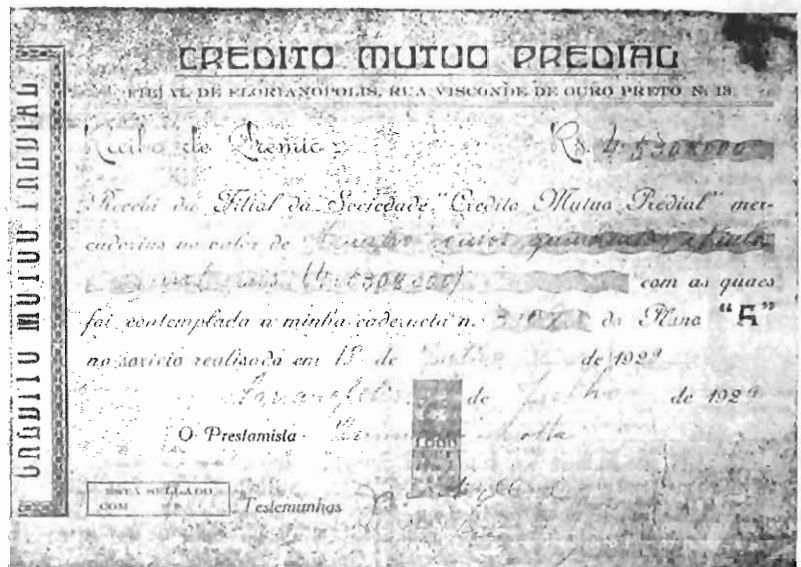 CREDITO MUTUO PREDIAL
CREDITO MUTUO PREDIAL
FILIAL DE FLORIANOPOLIS, RUA VISCONDE DE OURO PRETO N. 13
Recibo de Premio Rs. 4:530$000
Recebi da Filial da Sociedade "Credito Mutuo Predial" mer-
cadorias no valor de quatro contos quinhentos e trinta
mil reis (4:530$000) com as quaes
foi contemplada a minha caderneta n. do Plano "5"
no sorteio realisado em 18 de Julho de 1929
de Julho de 1929
O Prestamista
1000
ESTÁ SELLADO
COM
Testemunhas